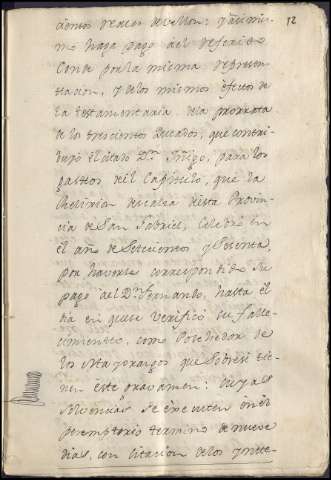 12
cientos reales de vellon: y así mis-
mo haga pago al referido
Conde por la misma represen-
tacion, y de los mismos efectos de
la testamentaria dela prorrata
de los trescientos Ducados, que contri-
buyó el citado Dn. Iñigo, para los
gastos del Capitulo, que la
Relixion descalza desta Provin-
cia de San Gabriel, celebró en
el año de Setecientos y Sesenta,
por haverse correspondido su
pago al Dn. Fernando, hasta el
dia en que se verificó su falle-
cimiento, como Posehedor de
los Mayorazgos que sobresi tie-
nen este gravamen: cuyas
se executen en el
peremptorio termino de nueve
dias, con citacion de los Ynte-